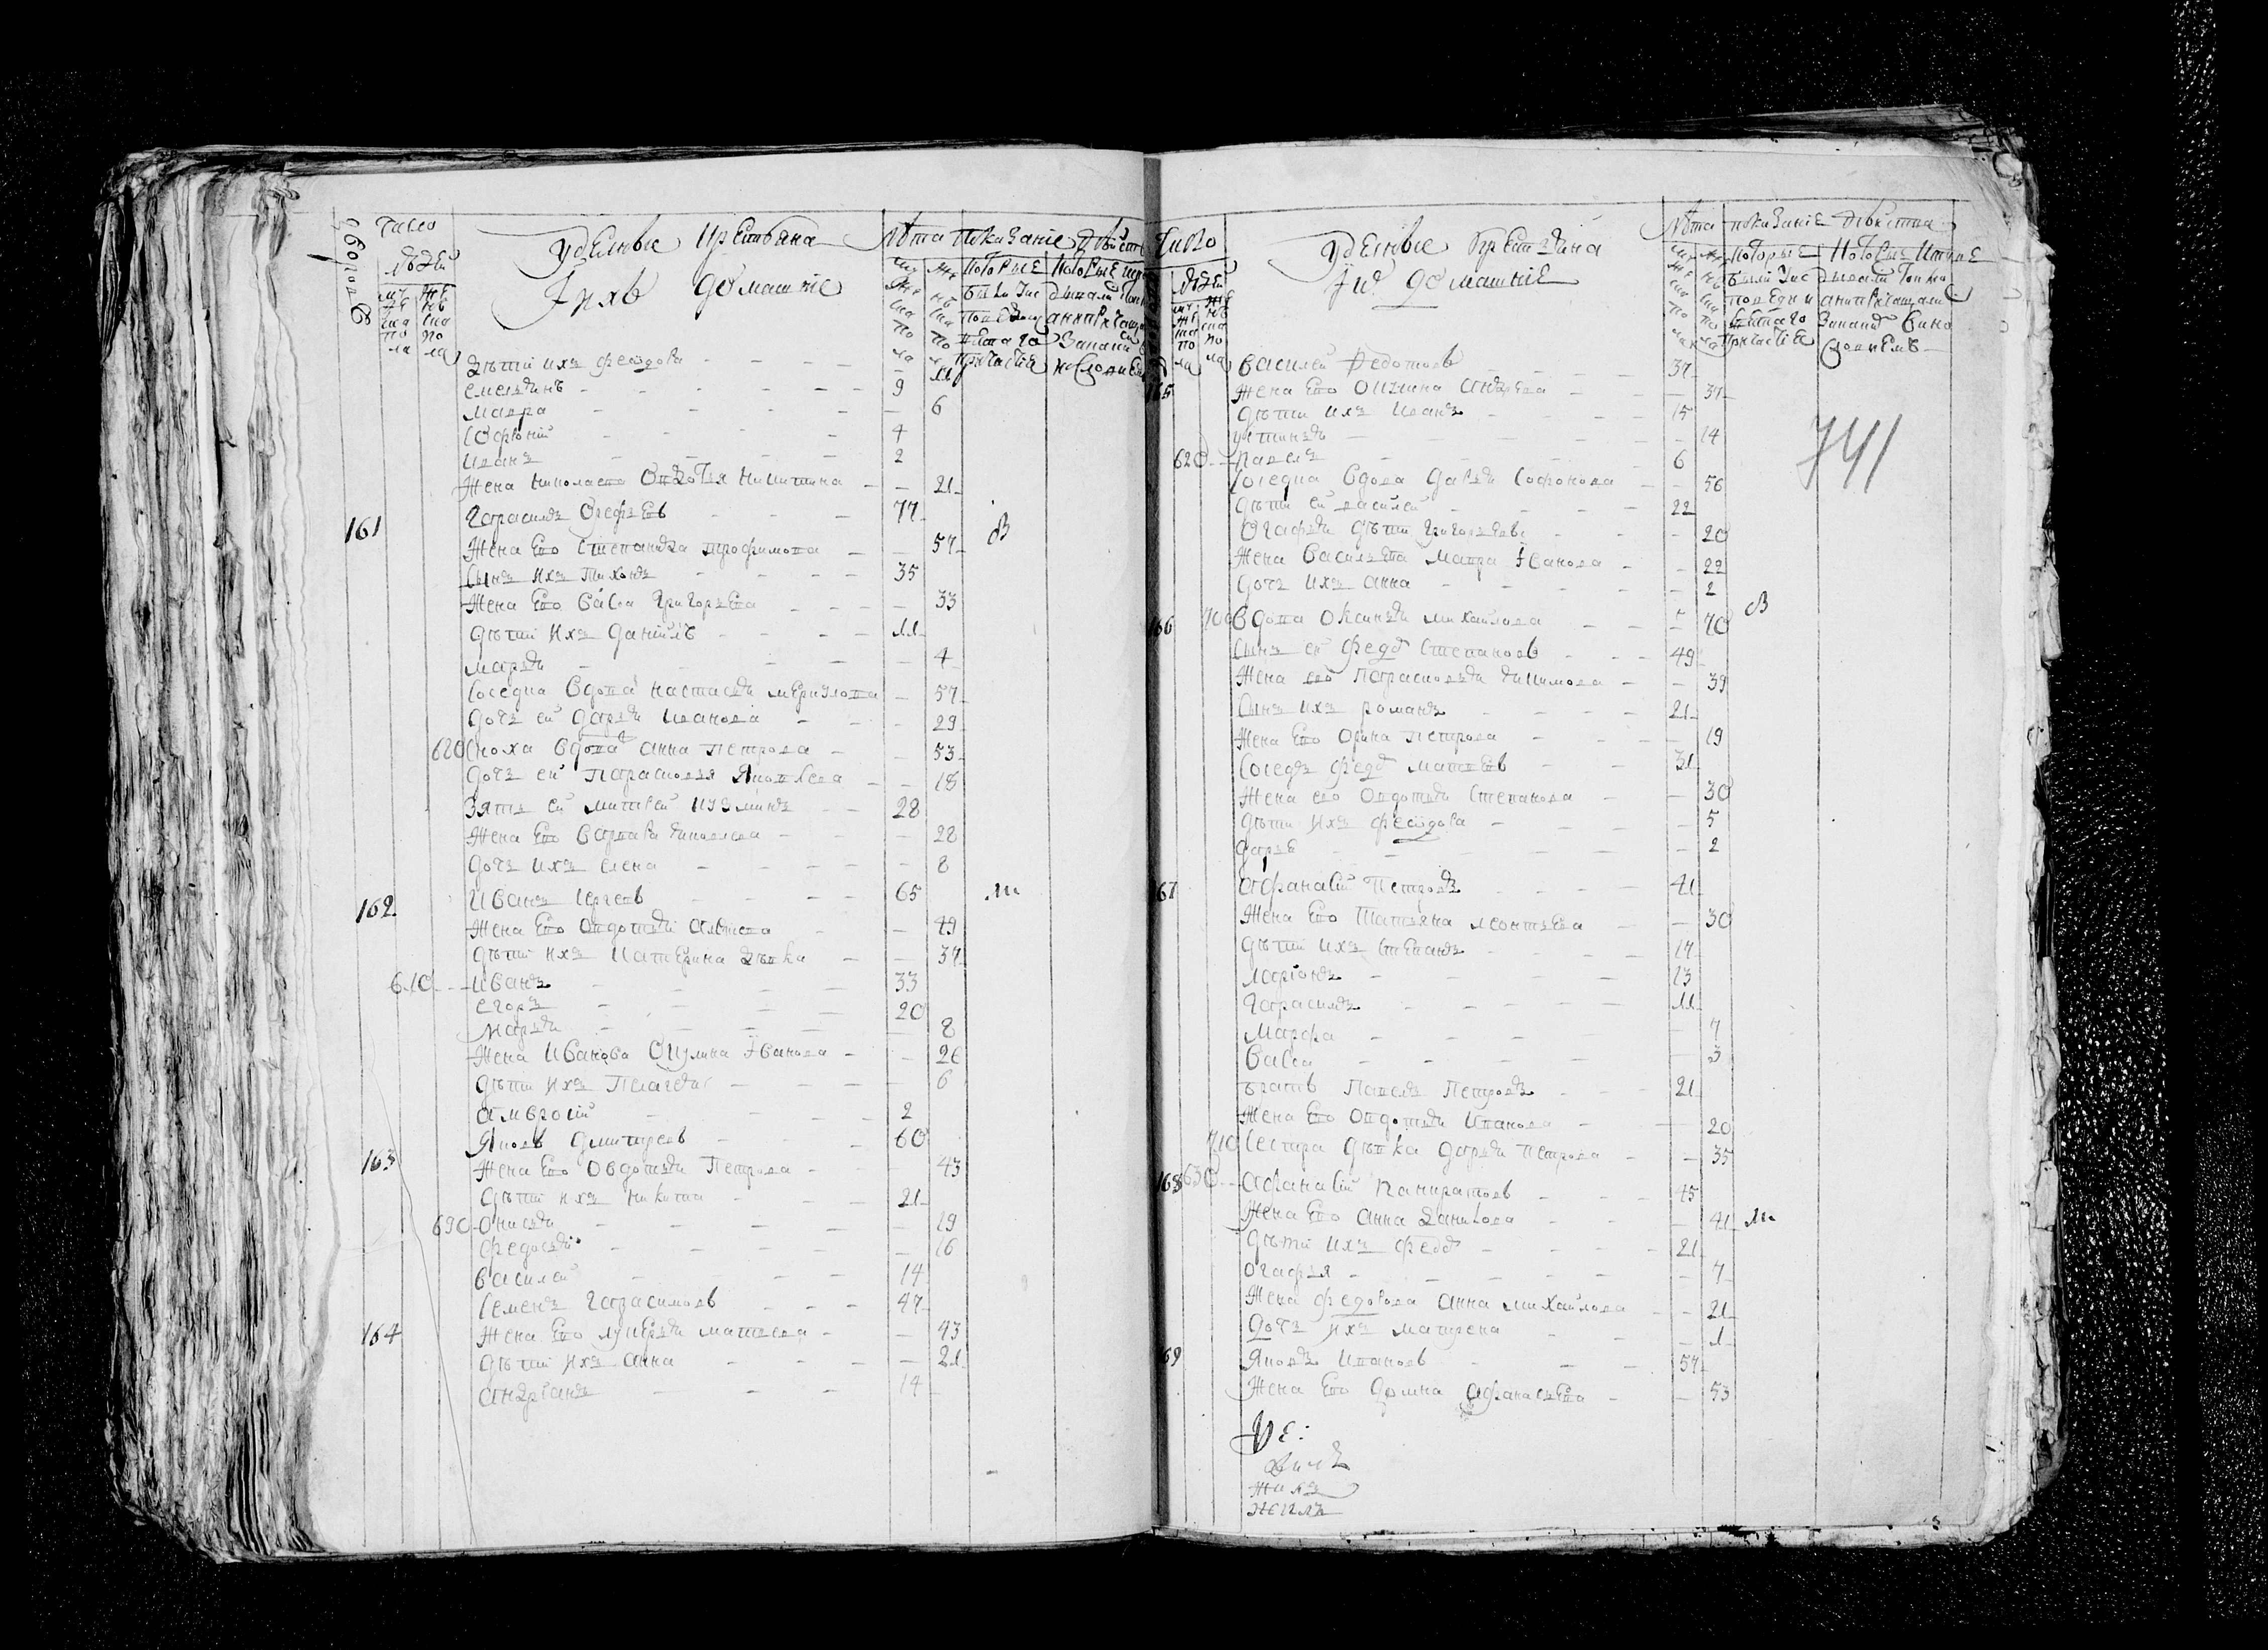 дворовъ
Число
людей
Муже
ска
по
ла
Жен
ска
по
ла
Удельные крестьяна
Лѣта
Показаніе действ
И ихъ домашніе
Которые
были у ис
поведи и
святаго
причастіе
дѣти ихъ Федора
Емельянъ 9
Мавра 6
Софроній 4
Иванъ 2
Жена Николаева Овдотья Никитина 21
161 Герасимъ Ерефѣевъ 77
Жена Ево Степанида Трофимова 57 В
Сынъ ихъ Тихонъ 35
Жена Ево Васса Григорьева 33
Дѣти ихъ Даніилъ 11
Марья 4
Соседка вдова Настасья Меркулова 57
Дочь ей Дарья Иванова 29
680 Сноха вдова Анна Петрова 53
Дочь ей Парасковья Яковлева 18
Зять ей Матвей Кузминъ 28
Жена Ево Варвара Яковлева 22
Дочь ихъ Елена 8
162 Иванъ Сергеевъ 65 м
Жена Ево Овдотья Алексеева 49
Дѣти ихъ Катерина дѣвка 37
610 Иванъ 33
Егоръ 20
Марья 8
Жена Иванова Окулина Иванова 26
Дѣти ихъ Пелагея 6
Амвросій 2
163 Яковъ Дмитреевъ 60
Жена Ево Овдотья Петрова 43
Дѣти ихъ Никита 21
690 Онисья 19
Федосья 16
Василей 14
Семенъ Герасимовъ 47
164 Жена Ево Лукерья Матвеева 43
Дѣти ихъ Анна 21
Андріанъ 14
Число
людей
Удельные Крестьяна
И их домашніе
Лѣта
показаніе действа
которые
были у ис
поведи и
святаго
Причастіе
Которые
Василей Федотовъ 37
165 Жена Ево Акулина Андреева 37
Дѣти ихъ Иванъ 15
Устинья 14
620 Павелъ 6
Соседка вдова Дарья Софонова 56
Дѣти ей Василей 22
Огафья дѣти Григорьевы 20
Жена Васильева Мавра Иванова 22
Дочь ихъ Анна 2
166 700 Вдова Оксинья Михайлова 70 В
Сынъ ей Федоръ Степановъ 49
Жена ево Парасковья Екимова 39
Сынъ ихъ Романъ 21
Жена Ево Орина Петрова 19
Соседъ Федоръ Матвеевъ 31
Жена ево Овдотья Степанова 30
Дѣти ихъ Федора 5
Дарья 2
167 Афанасій Петровъ 41
Жена Ево Татьяна Леонтьева 30
Дѣти ихъ Степанъ 17
Ларіонъ 13
Герасимъ 11
Марфа 7
Васса 3
братъ Павелъ Петровъ 21
Жена Ево Овдотья Иванова 20
710 Сестра дѣвка Дарья Петрова 35
168 630 Афанасій Панкратовъ 45
Жена Ево Анна Данилова 41 м
Дѣти ихъ Федоръ 21
Огафья 7
Жена Федорова Анна Михайлова 21
Дочь ихъ Матрена 1
169 Яковъ Ивановъ 57
Жена Ево Домна Афанасьева 53
741